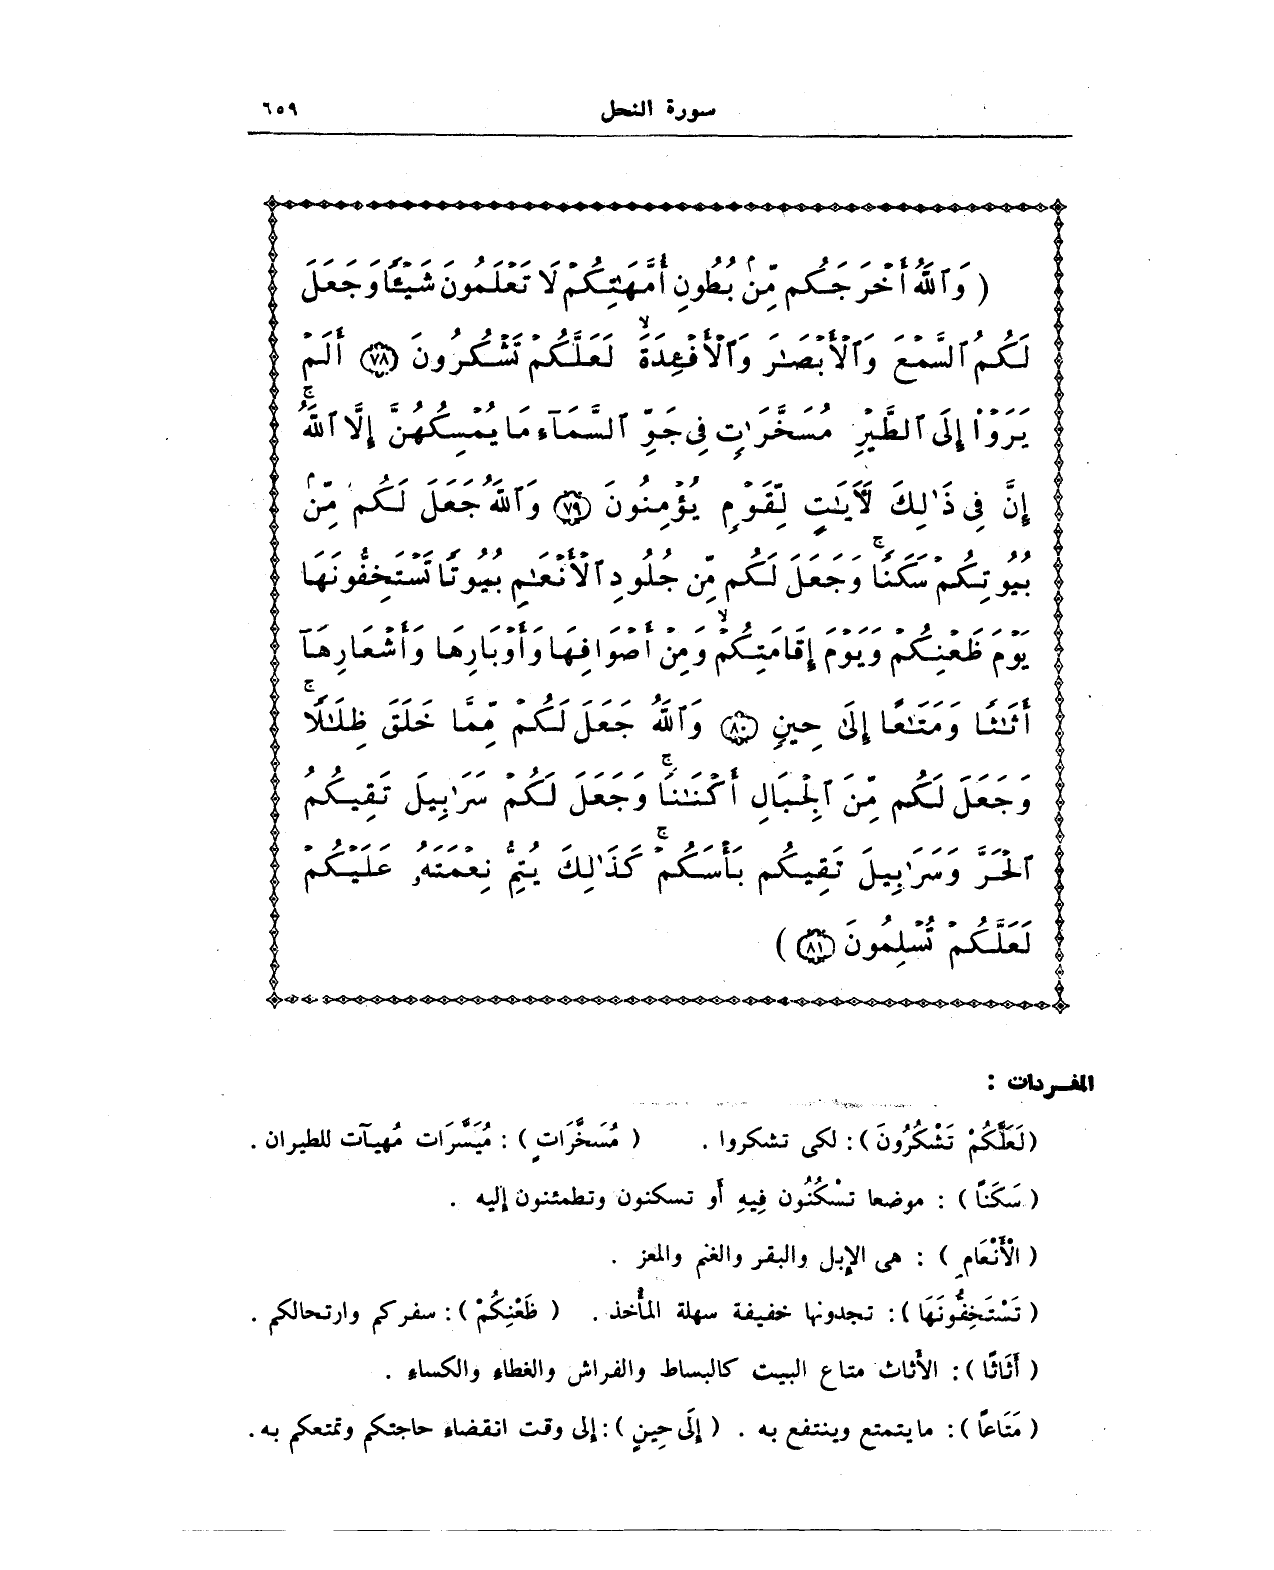 سورة النحل ٦٥٩
( وَٱللَّهُ أَخْرَجَكُم مِّنۢ بُطُونِ أُمَّهَٰتِكُمْ لَا تَعْلَمُونَ شَيْـًٔا وَجَعَلَ
لَكُمُ ٱلسَّمْعَ وَٱلْأَبْصَٰرَ وَٱلْأَفْـِٔدَةَ ۙ لَعَلَّكُمْ تَشْكُرُونَ ٧٨ أَلَمْ
يَرَوْا۟ إِلَى ٱلطَّيْرِ مُسَخَّرَٰتٍ فِى جَوِّ ٱلسَّمَآءِ مَا يُمْسِكُهُنَّ إِلَّا ٱللَّهُ ۚ
إِنَّ فِى ذَٰلِكَ لَـَٔايَٰتٍ لِّقَوْمٍ يُؤْمِنُونَ ٧٩ وَٱللَّهُ جَعَلَ لَكُم مِّنۢ
بُيُوتِكُمْ سَكَنًا ۚ وَجَعَلَ لَكُم مِّن جُلُودِ ٱلْأَنْعَٰمِ بُيُوتًا تَسْتَخِفُّونَهَا
يَوْمَ ظَعْنِكُمْ وَيَوْمَ إِقَامَتِكُمْ ۙ وَمِنْ أَصْوَافِهَا وَأَوْبَارِهَا وَأَشْعَارِهَآ
أَثَٰثًا وَمَتَٰعًا إِلَىٰ حِينٍ ٨٠ وَٱللَّهُ جَعَلَ لَكُم مِّمَّا خَلَقَ ظِلَٰلًا ۚ
وَجَعَلَ لَكُم مِّنَ ٱلْجِبَالِ أَكْنَٰنًا ۚ وَجَعَلَ لَكُمْ سَرَٰبِيلَ تَقِيكُمُ
ٱلْحَرَّ وَسَرَٰبِيلَ تَقِيكُم بَأْسَكُمْ ۚ كَذَٰلِكَ يُتِمُّ نِعْمَتَهُۥ عَلَيْكُمْ
لَعَلَّكُمْ تُسْلِمُونَ ٨١ )
المفردات :
(لَعَلَّكُمْ تَشْكُرُونَ): لكى تشكروا . ( مُسَخَّرَاتٍ): مُيَسَّرَات مُهيآت للطيران .
(سَكَنًا) : موضعا تسْكُنُون فِيهِ أَو تسكنون وتطمئنون إليه .
( الْأَنْعَامِ ) : هى الإبل والبقر والغنم والمعز .
(تَسْتَخِفُّونَهَا): تجدونها خفيفة سهلة المأُخذ . ( ظَعْنِكُمْ): سفركم وارتحالكم .
( أَثَاثًا ): الأَثاث متاع البيت كالبساط والفراش والغطاء والكساء .
( مَتَاعاً ): ما يتمتع وينتفع به . ( إِلَى حِينٍ ): إلى وقت انقضاء حاجتكم وتمتعكم به .